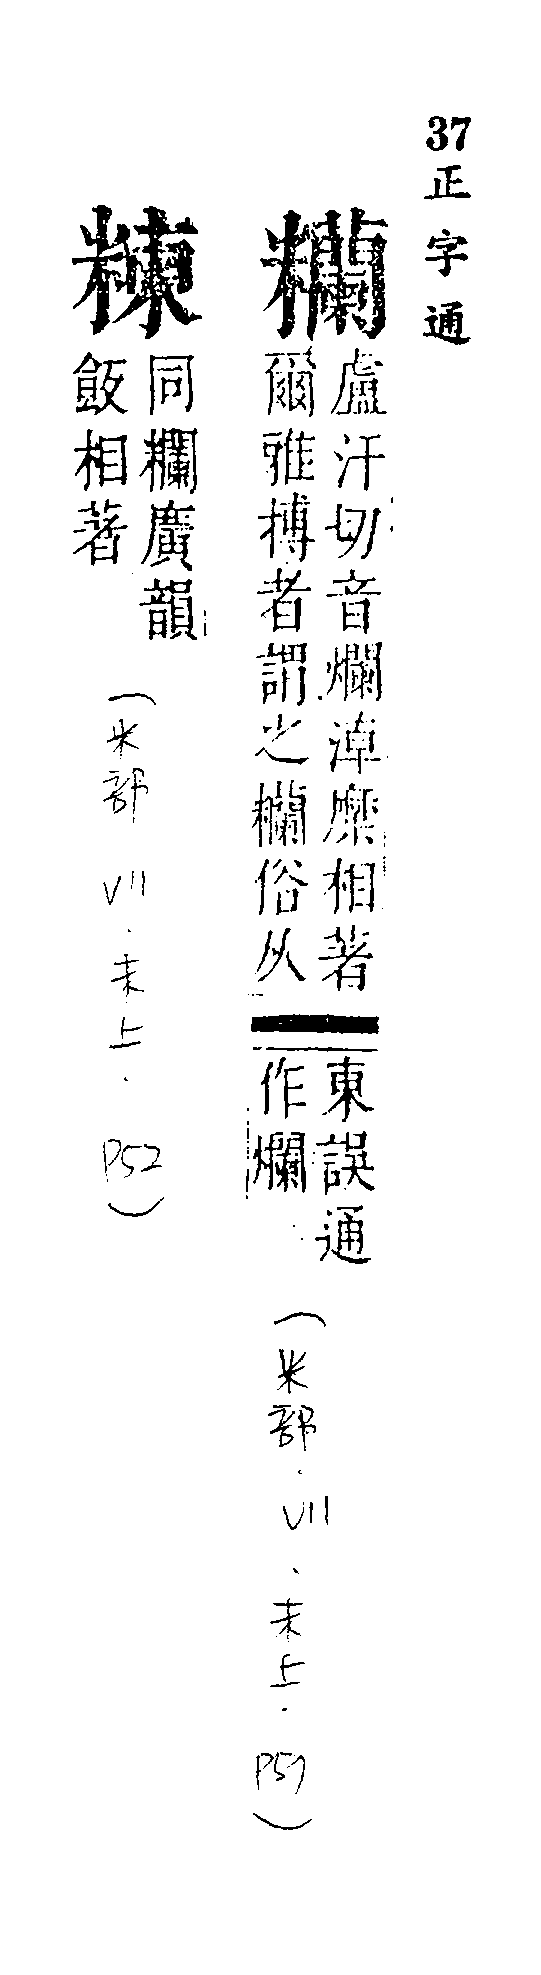 37正字通
糷
盧汗切音爛淖糜相著
爾雅摶者謂之糷俗从
東誤通
作爛
(米部.VII.未上.P51)
𥻂
同糷廣韻
飯相著
(米部 VII.未上.P52)